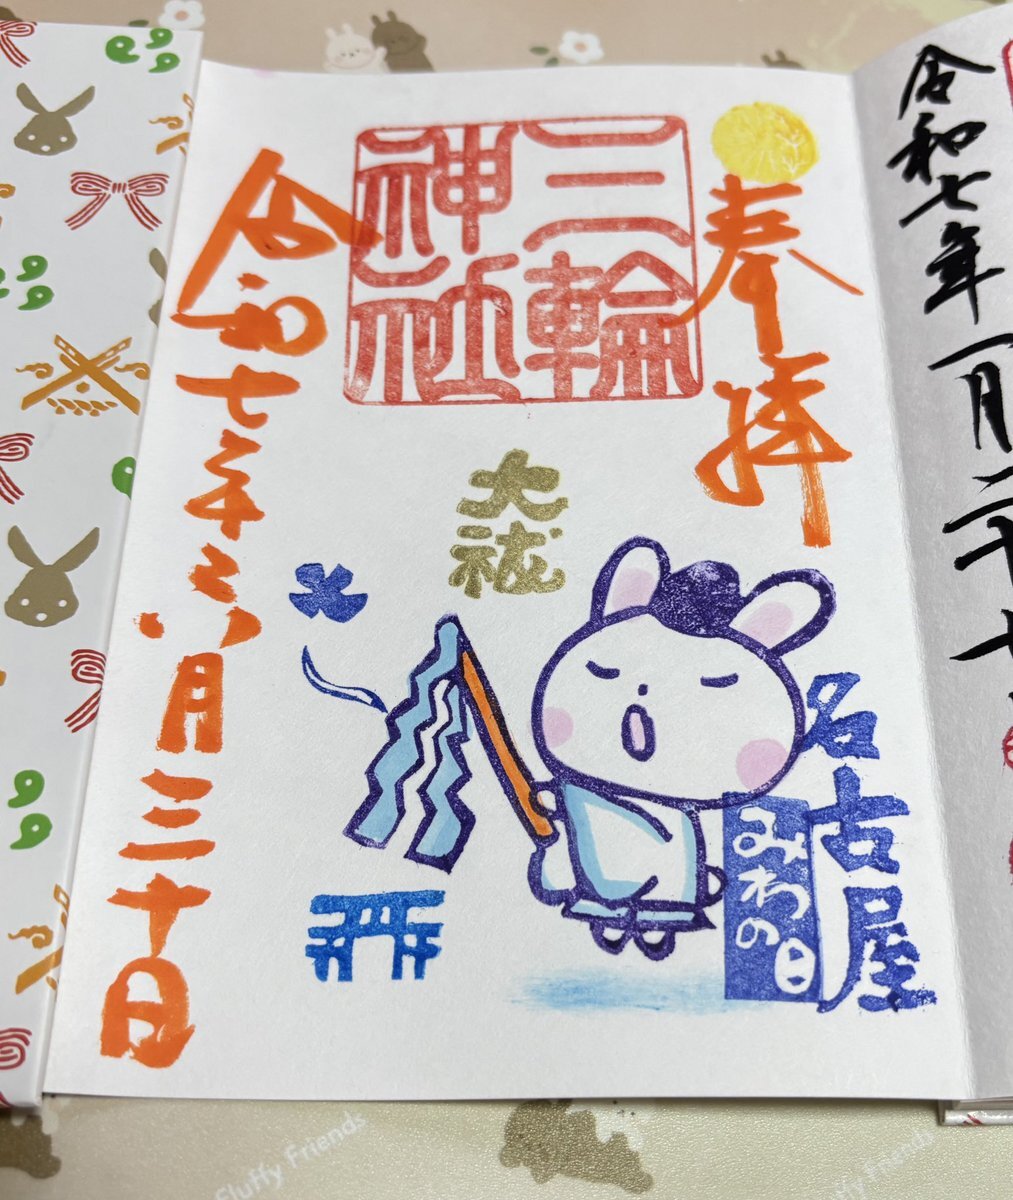 令和七年一月二十七
奉拝
三輪
神社
名古屋
みわの日
大祓
令和七年六月三十日
Fluffy Friends